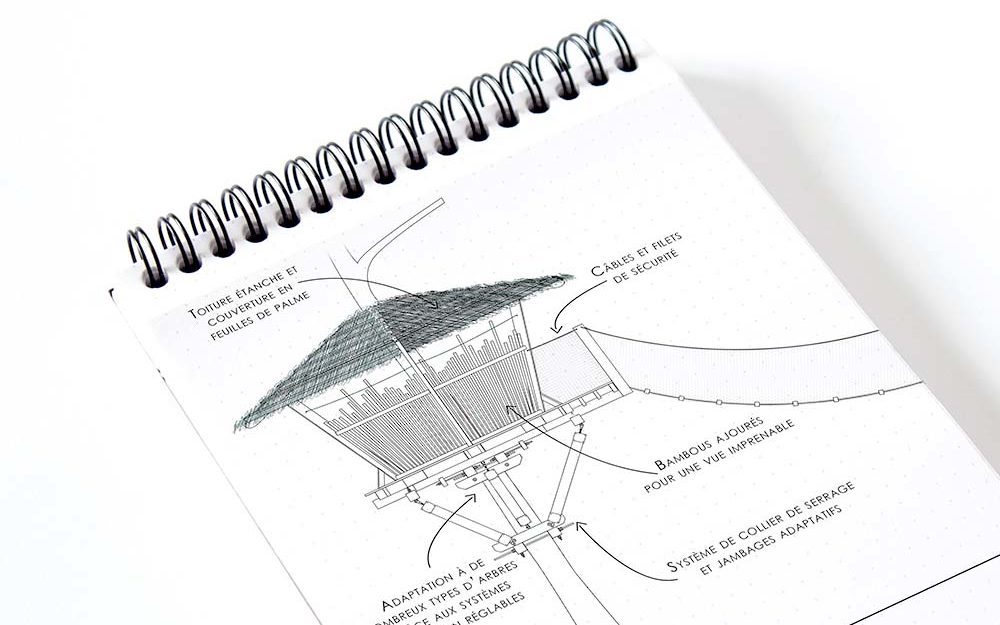 TOITURE ÉTANCHE ET
COUVERTURE EN
FEUILLES DE PALME
CÂBLES ET FILETS
DE SÉCURITÉ
BAMBOUS AJOURÉS
POUR UNE VUE IMPRENABLE
SYSTÈME DE COLLIER DE SERRAGE
ET JAMBAGES ADAPTATIFS
ADAPTATION À DE
TYPES D'ARBRES
AUX SYSTÈMES
RÉGLABLES